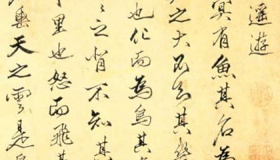 遥遊
冥有魚其名為
之大不知其幾
也化而為鳥其
之背不知其
里也怒而飛其
垂天之雲是鳥